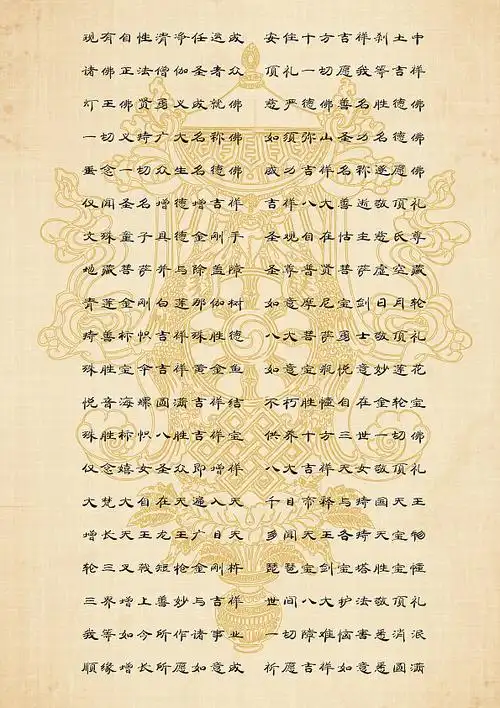 现有自性清净任运成 安住十方吉祥刹土中
诸佛正法僧伽圣者众 顶礼一切愿我等吉祥
灯王佛贤勇义成就佛 慈严德佛善名胜德佛
一切义琦广大名称佛 如须弥山圣力名德佛
垂念一切众生名德佛 威力吉祥名称遂愿佛
仅闻圣名增德增吉祥 吉祥八大善逝敬顶礼
文殊童子具德金刚手 圣观自在怙主慈氏尊
地藏菩萨并与除盖障 圣尊普贤菩萨虚空藏
青莲金刚白莲那伽树 如意摩尼宝剑日月轮
琦兽标帜吉祥殊胜德 八大菩萨勇士敬顶礼
殊胜宝伞吉祥黄金鱼 如意宝瓶悦意妙莲花
悦音海螺圆满吉祥结 不朽胜幢自在金轮宝
殊胜标帜八胜吉祥宝 供养十方三世一切佛
仅念嬉女圣众即增祥 八大吉祥天女敬顶礼
大梵大自在天遍入天 千日帝释与琦国天王
增长天王龙王广目天 多闻天王各琦天宝物
轮三叉戟短枪金刚杵 琵琶宝剑宝塔胜宝幢
三界增上善妙与吉祥 世间八大护法敬顶礼
我等如今所作诸事业 一切障难恼害悉消泯
顺缘增长所愿如意成 祈愿吉祥如意悉圆满